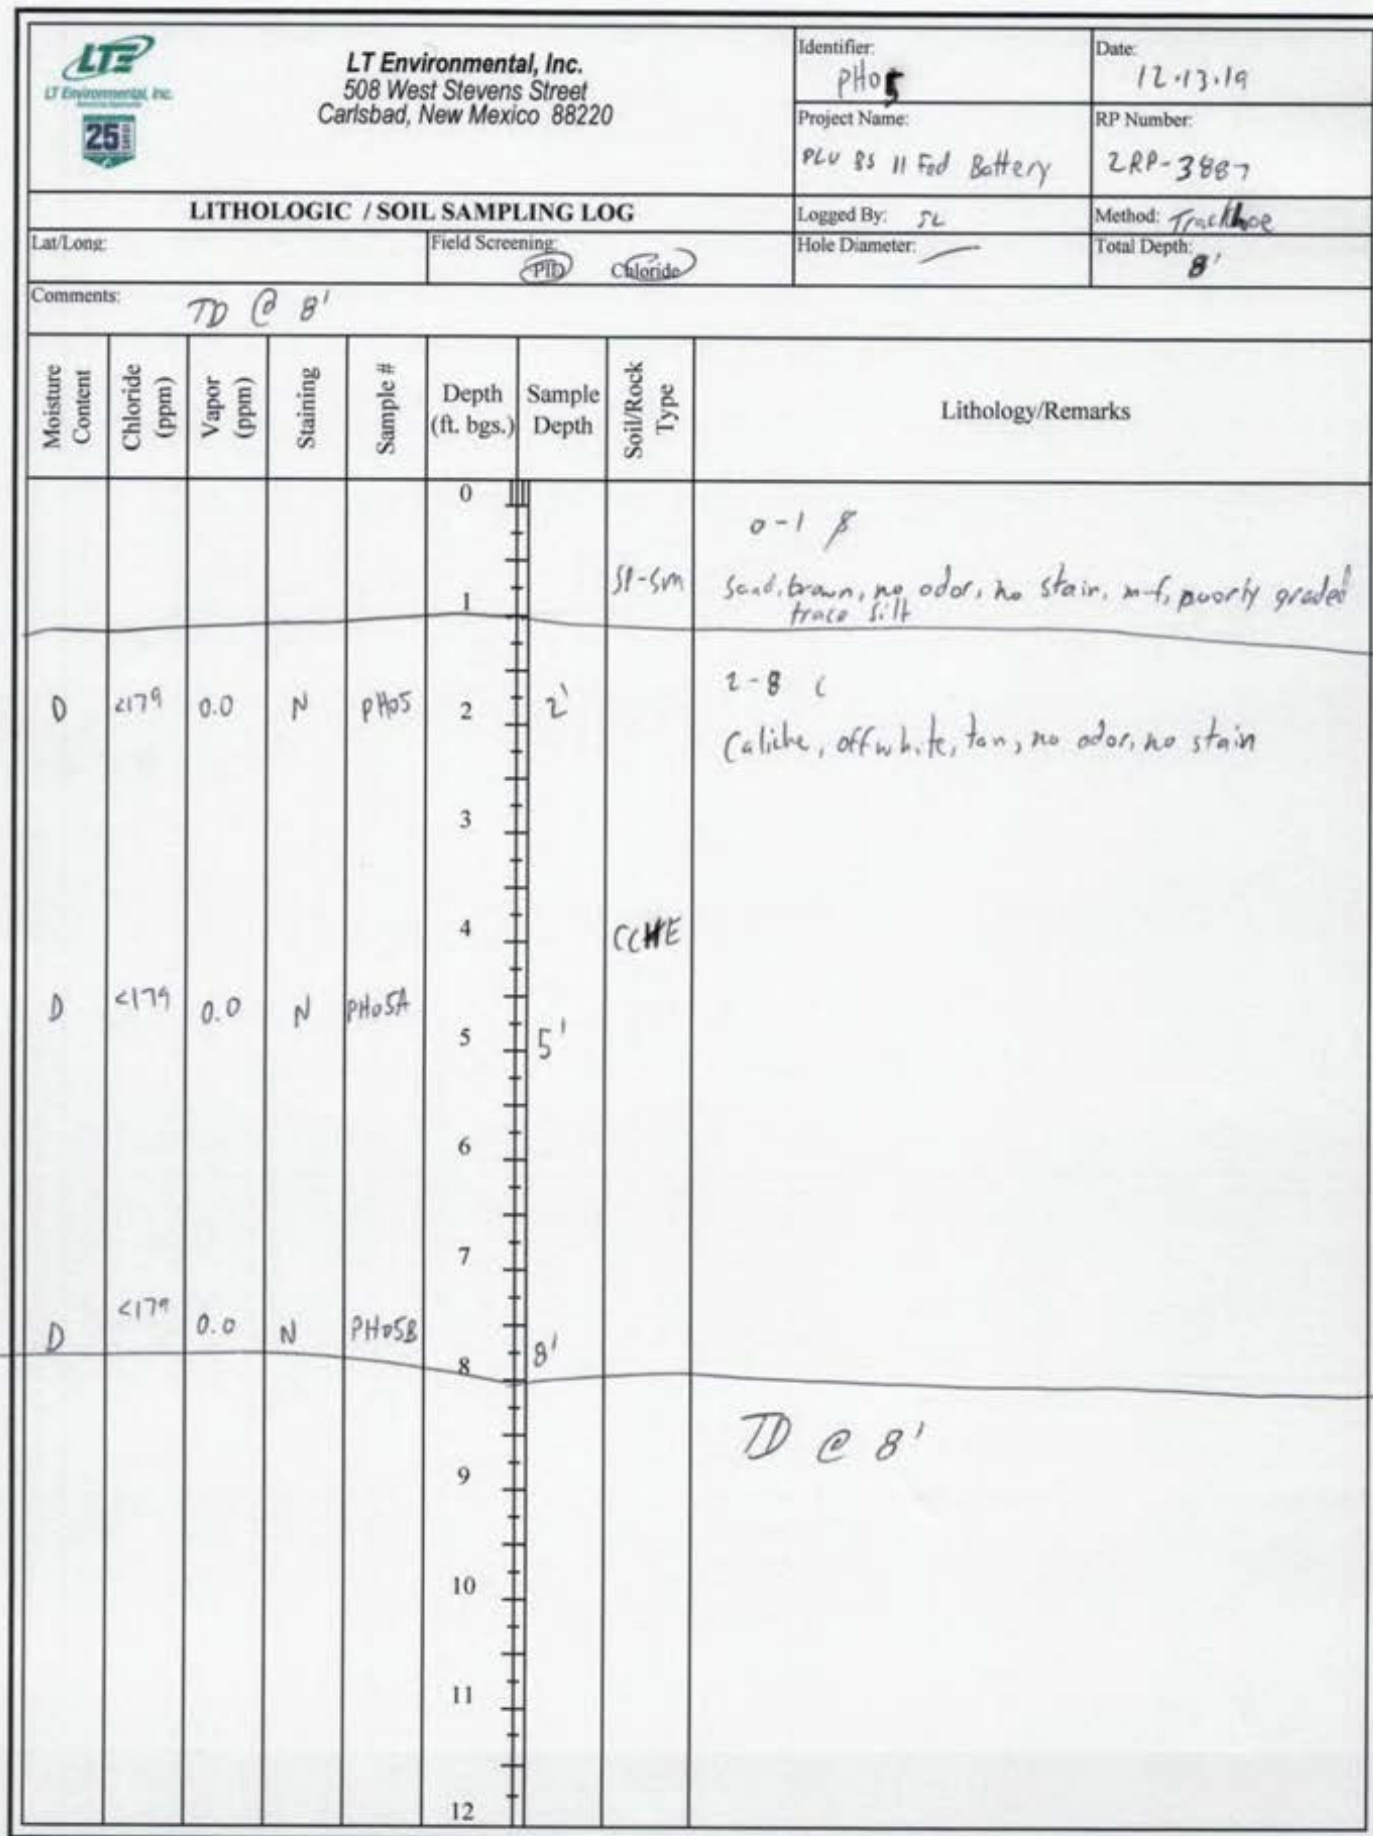 LTE
LT Environmental, Inc.
25
LT Environmental, Inc.
508 West Stevens Street
Carlsbad, New Mexico 88220
Identifier:
PH05
Date:
12.13.19
Project Name:
PLU BS 11 Fed Battery
RP Number:
2RP-3887
LITHOLOGIC / SOIL SAMPLING LOG
Logged By: JL
Method: Trackhoe
Lat/Long:
Field Screening:
PID Chloride
Hole Diameter:
Total Depth:
8'
Comments:
TD @ 8'
Moisture Content
Chloride (ppm)
Vapor (ppm)
Staining
Sample #
Depth (ft. bgs.)
Sample Depth
Soil/Rock Type
Lithology/Remarks
0
0-1
SP-SM sand, brown, no odor, no stain, m-f, poorly graded
trace silt
1
2-8
D <179 0.0 N PH05 2 2'
Caliche, offwhite, tan, no odor, no stain
3
4 CCHE
D <179 0.0 N PH05A
5 5'
6
7
D <179 0.0 N PH05B
8 8'
TD @ 8'
9
10
11
12